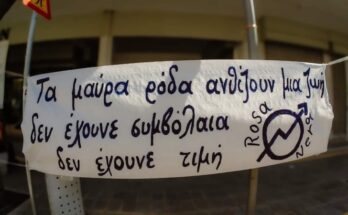 Τα μαύρα ρόδα ανθίζουν μια ζωή
δεν έχουνε συμβόλαια
δεν έχουνε τιμή
Rosa
Nera